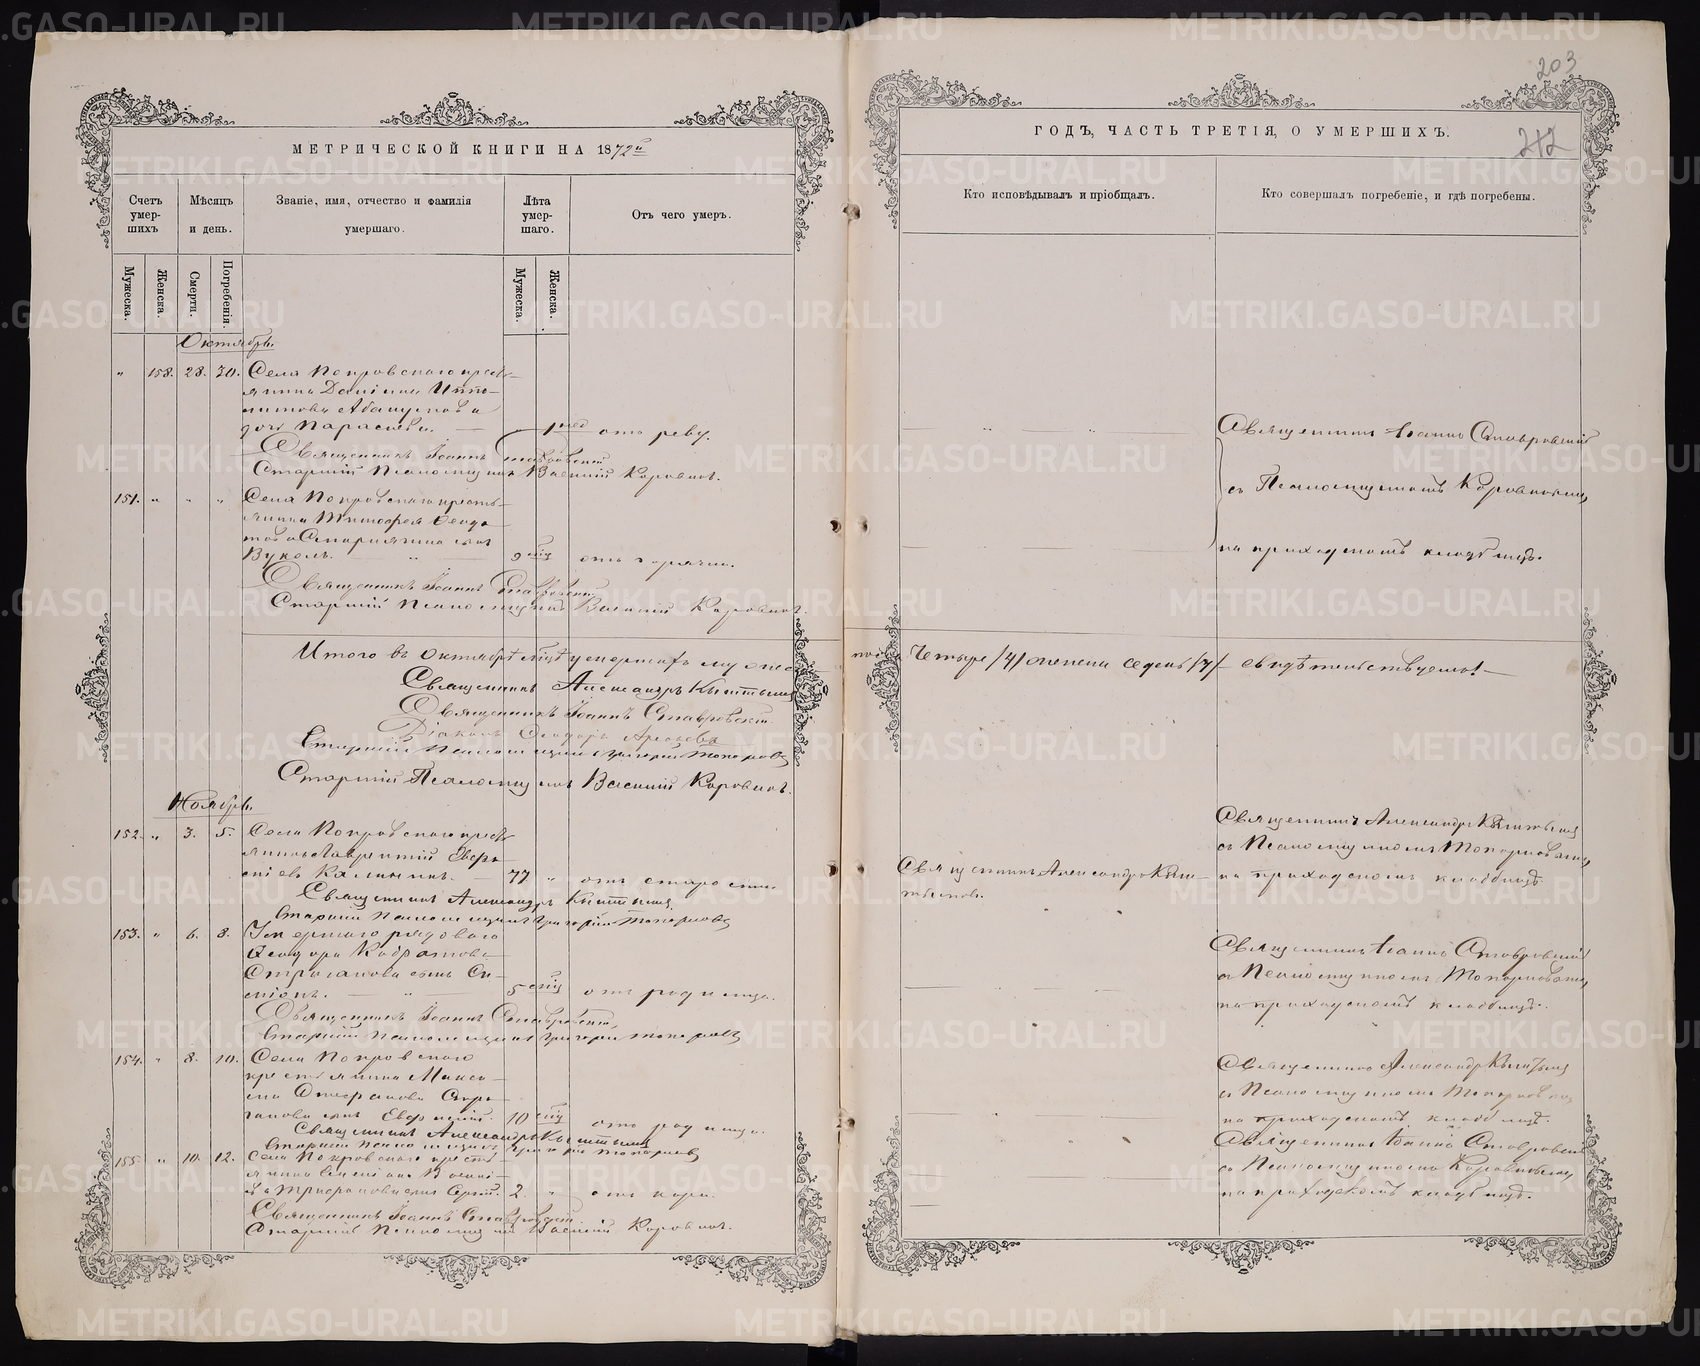 МЕТРИЧЕСКОЙ КНИГИ НА 1872й
Счетъ умершихъ
Мѣсяцъ и день.
Званіе, имя, отчество и фамилія умершаго.
Лѣта умершаго.
Отъ чего умеръ.
Мужеска.
Женска.
Смерти.
Погребенія.
Мужеска.
Женска.
Октябрь.
" 158. 28. 30. Села Покровскаго кресть-
янина Даміана Иппо-
литова
дочь Параскева. — 1 нед отъ реву.
Священникъ Іоаннъ Ставровскій
Старшій Псаломщикъ Василій Коровинъ.
151. " " " Села Покровскаго кресть-
янина Тимофея Ѳеодо-
това сынъ
Вуколъ. " 9 мѣц отъ горячки.
Священникъ Іоаннъ Ставровскій
Старшій Псаломщикъ Василій Коровинъ.
Итого въ Октябрѣ мцѣ умершихъ
Священникъ Александръ
Священникъ Іоаннъ Ставровскій
Діаконъ Ѳеодоръ
Старшій Псаломщикъ Григорій Топорковъ
Старшій Псаломщикъ Василій Коровинъ.
Ноябрь.
152. " 3. 5. Села Покровскаго кресть-
янинъ Лаврентій
Калининъ. 77 " отъ старости
Священникъ Александръ
Старшій Псаломщикъ Григорій Топорковъ
153. " 6. 8. рядоваго
Ѳеодора
Строганова сынъ Си-
меонъ. " 5 мѣц отъ родимца.
Священникъ Іоаннъ Ставровскій
Старшій Псаломщикъ Григорій Топорковъ
154. " 8. 10. Села Покровскаго
крестьянина Макси-
ма Стефанова Стро-
ганова сынъ 10 мѣц отъ родимца.
Священникъ Александръ
Старшій Псаломщикъ Григорій Топорковъ
155. " 10. 12. Села Покровскаго кресть-
янина
сынъ Сергій. 2. " отъ кори.
Священникъ Іоаннъ Ставровскій
Старшій Псаломщикъ Василій Коровинъ.
203
212
ГОДЪ, ЧАСТЬ ТРЕТІЯ, О УМЕРШИХЪ.
Кто исповѣдывалъ и пріобщалъ.
Кто совершалъ погребеніе, и гдѣ погребены.
Священникъ Іоаннъ Ставровскій
съ Псаломщикомъ Коровинымъ
на приходскомъ кладбищѣ.
четыре /4/ женска седмь /7/ свидѣтельствуемъ! —
Священникъ Александръ
съ Псаломщикомъ Топорковымъ
на приходскомъ кладбищѣ
Священникъ Александръ
Священникъ Іоаннъ Ставровскій
съ Псаломщикомъ Топорковымъ
на приходскомъ кладбищѣ.
Священникъ Александръ
съ Псаломщикомъ Топорковымъ
на приходскомъ кладбищѣ.
Священникъ Іоаннъ Ставровскій
съ Псаломщикомъ Коровинымъ
на приходскомъ кладбищѣ.
METRIKI.GASO-URAL.RU